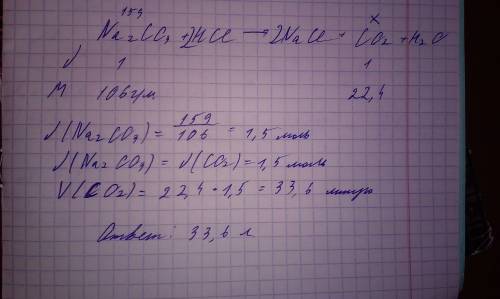 159 x
Na2CO3 + 2HCl → 2NaCl + CO2 + H2O
ν 1 1
M 106 г/м 22,4
ν(Na2CO3) = 159/106 = 1,5 моль
ν(Na2CO3) = ν(CO2) = 1,5 моль
V(CO2) = 22,4 · 1,5 = 33,6 литра
Ответ: 33,6 л